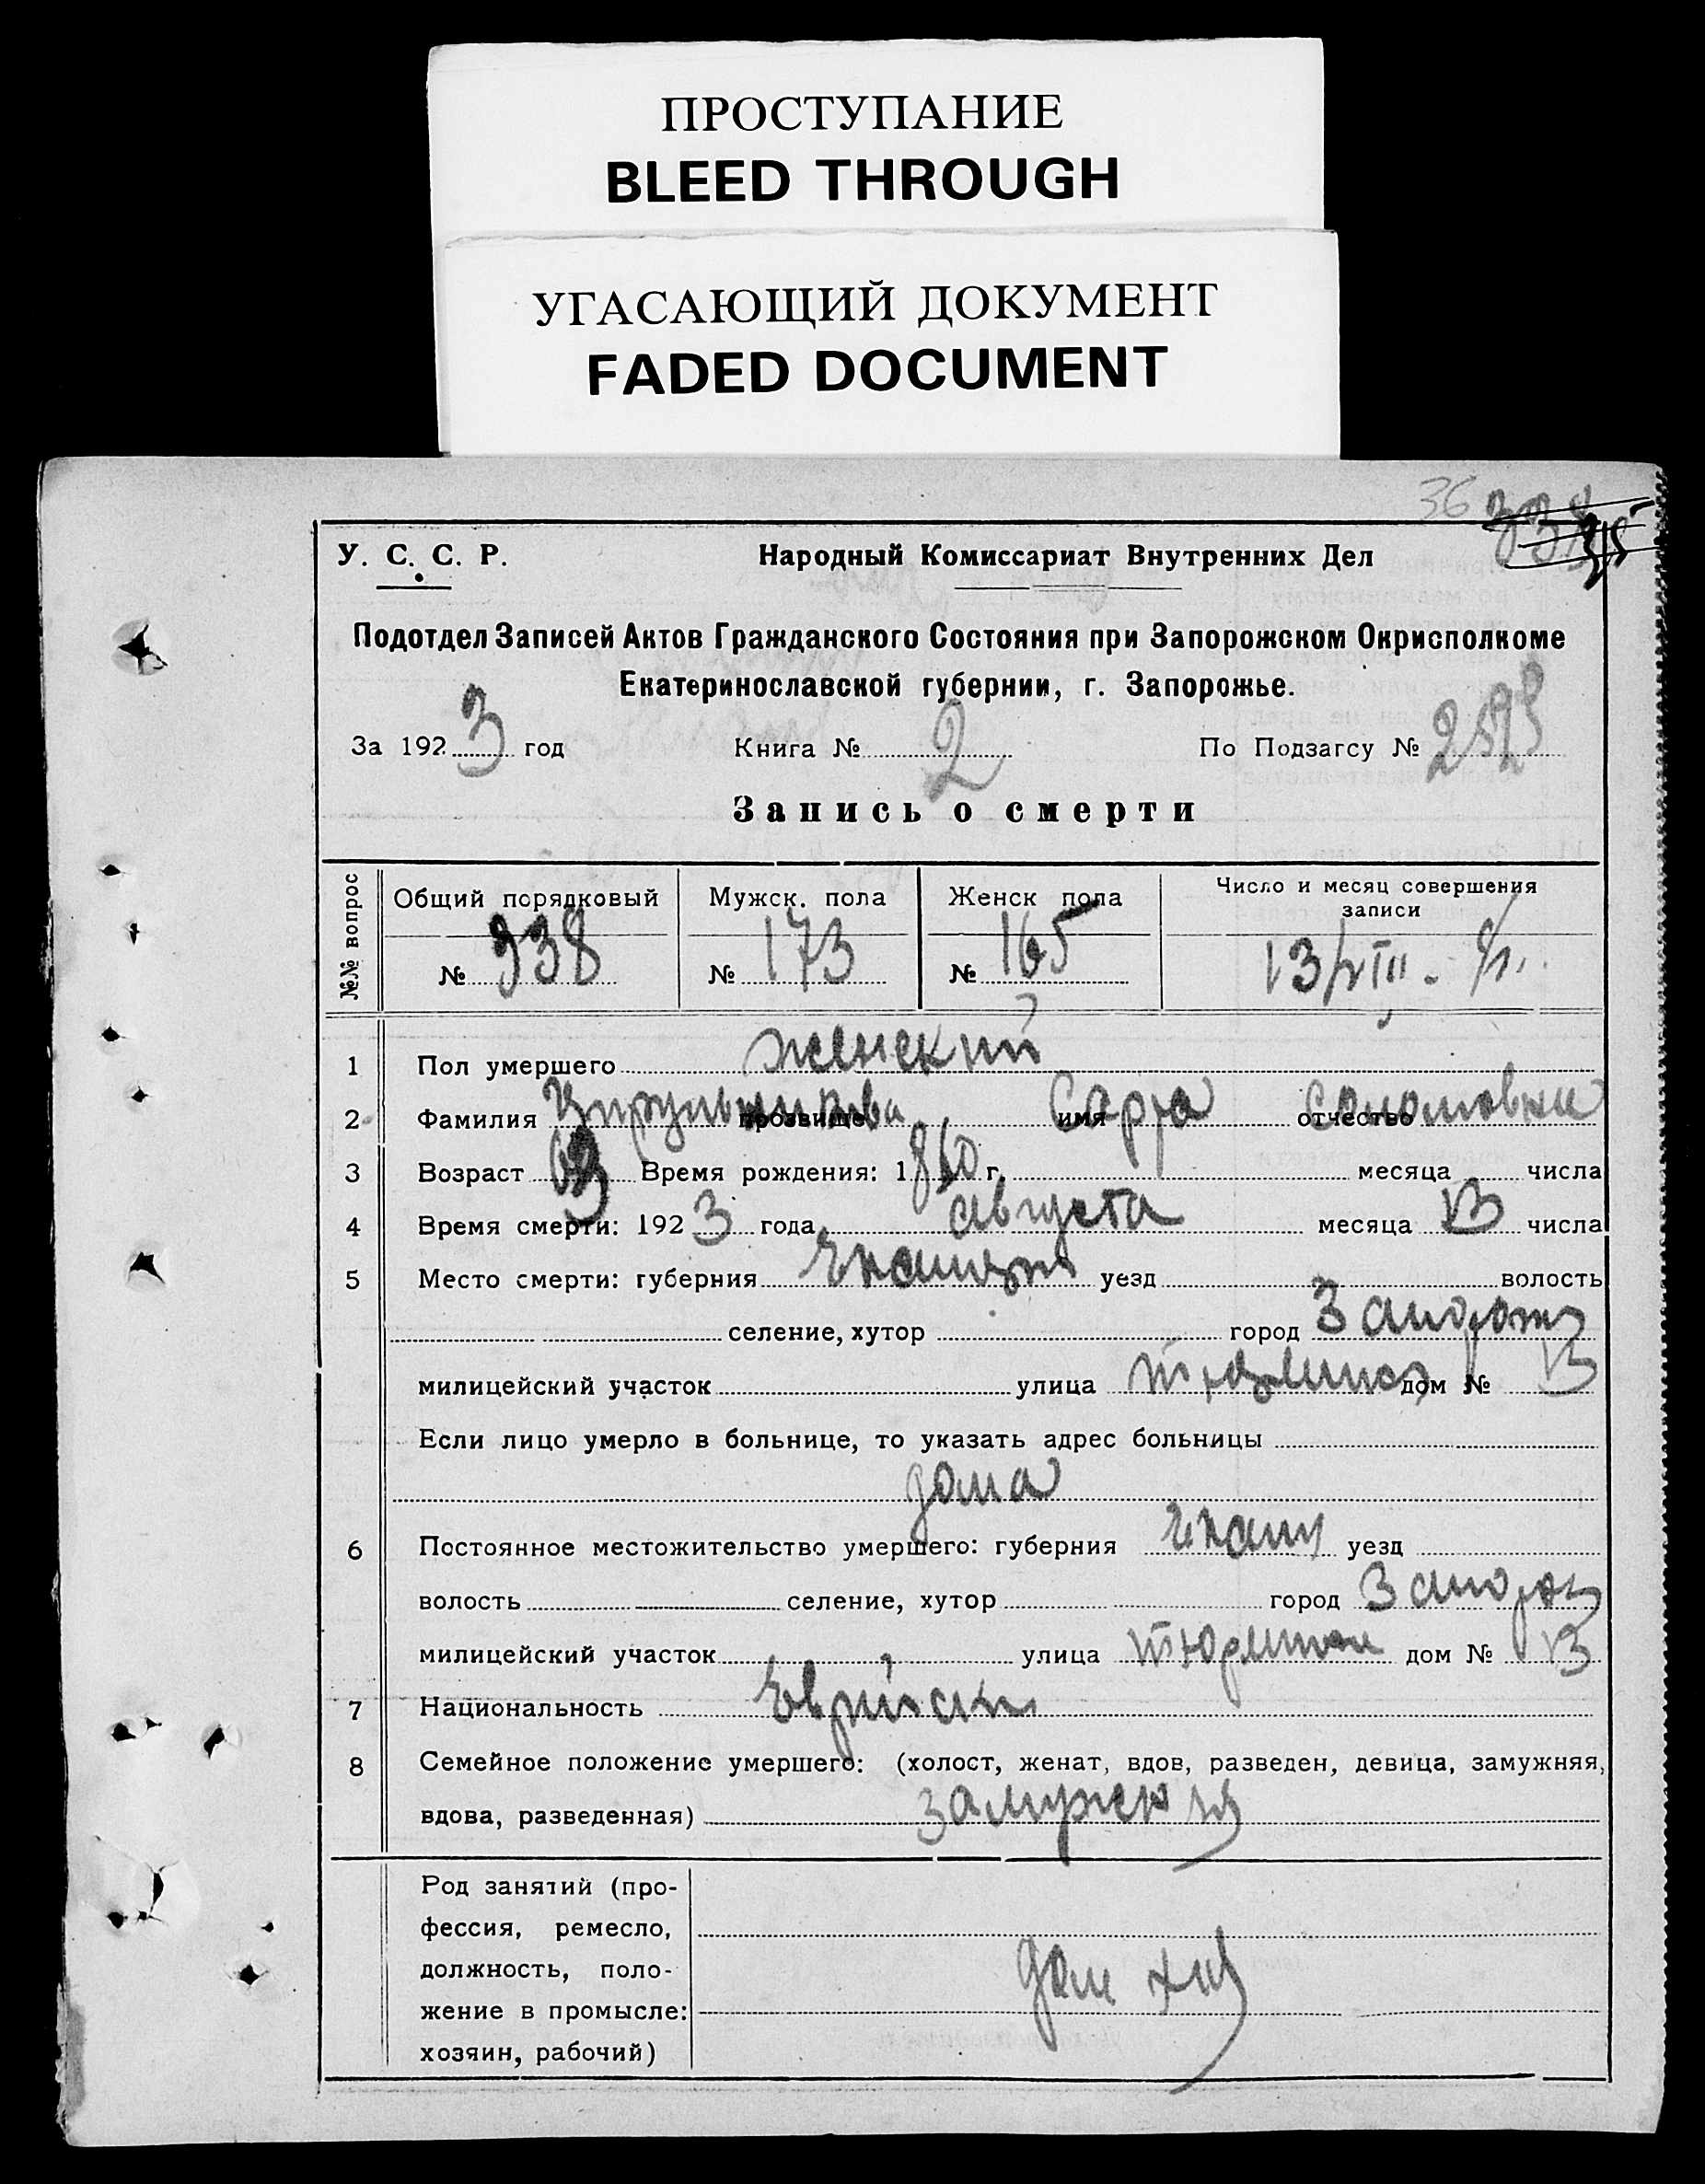 ПРОСТУПАНИЕ
BLEED THROUGH
УГАСАЮЩИЙ ДОКУМЕНТ
FADED DOCUMENT
36
У. С. С. Р. Народный Комиссариат Внутренних Дел
Подотдел Записей Актов Гражданского Состояния при Запорожском Окрисполкоме
Екатеринославской губернии, г. Запорожье.
За 1923 год Книга № 2 По Подзагсу №
Запись о смерти
№№ вопрос Общий порядковый Мужск. пола Женск пола Число и месяц совершения записи
№ 338 № 173 № 165 13/VIII
1 Пол умершего женский
2 Фамилия Цирульникова прозвище имя Сарра отчество Соломовна
3 Возраст 63 Время рождения: 1860 г. месяца числа
4 Время смерти: 1923 года августа месяца 13 числа
5 Место смерти: губерния уезд волость
селение, хутор город Запорож
милицейский участок улица дом № 13
Если лицо умерло в больнице, то указать адрес больницы
дома
6 Постоянное местожительство умершего: губерния Екат уезд
волость селение, хутор город Запорож
милицейский участок улица дом № 13
7 Национальность
8 Семейное положение умершего: (холост, женат, вдов, разведен, девица, замужняя,
вдова, разведенная) замужняя
Род занятий (про-
фессия, ремесло,
должность, поло- дом хоз
жение в промысле:
хозяин, рабочий)